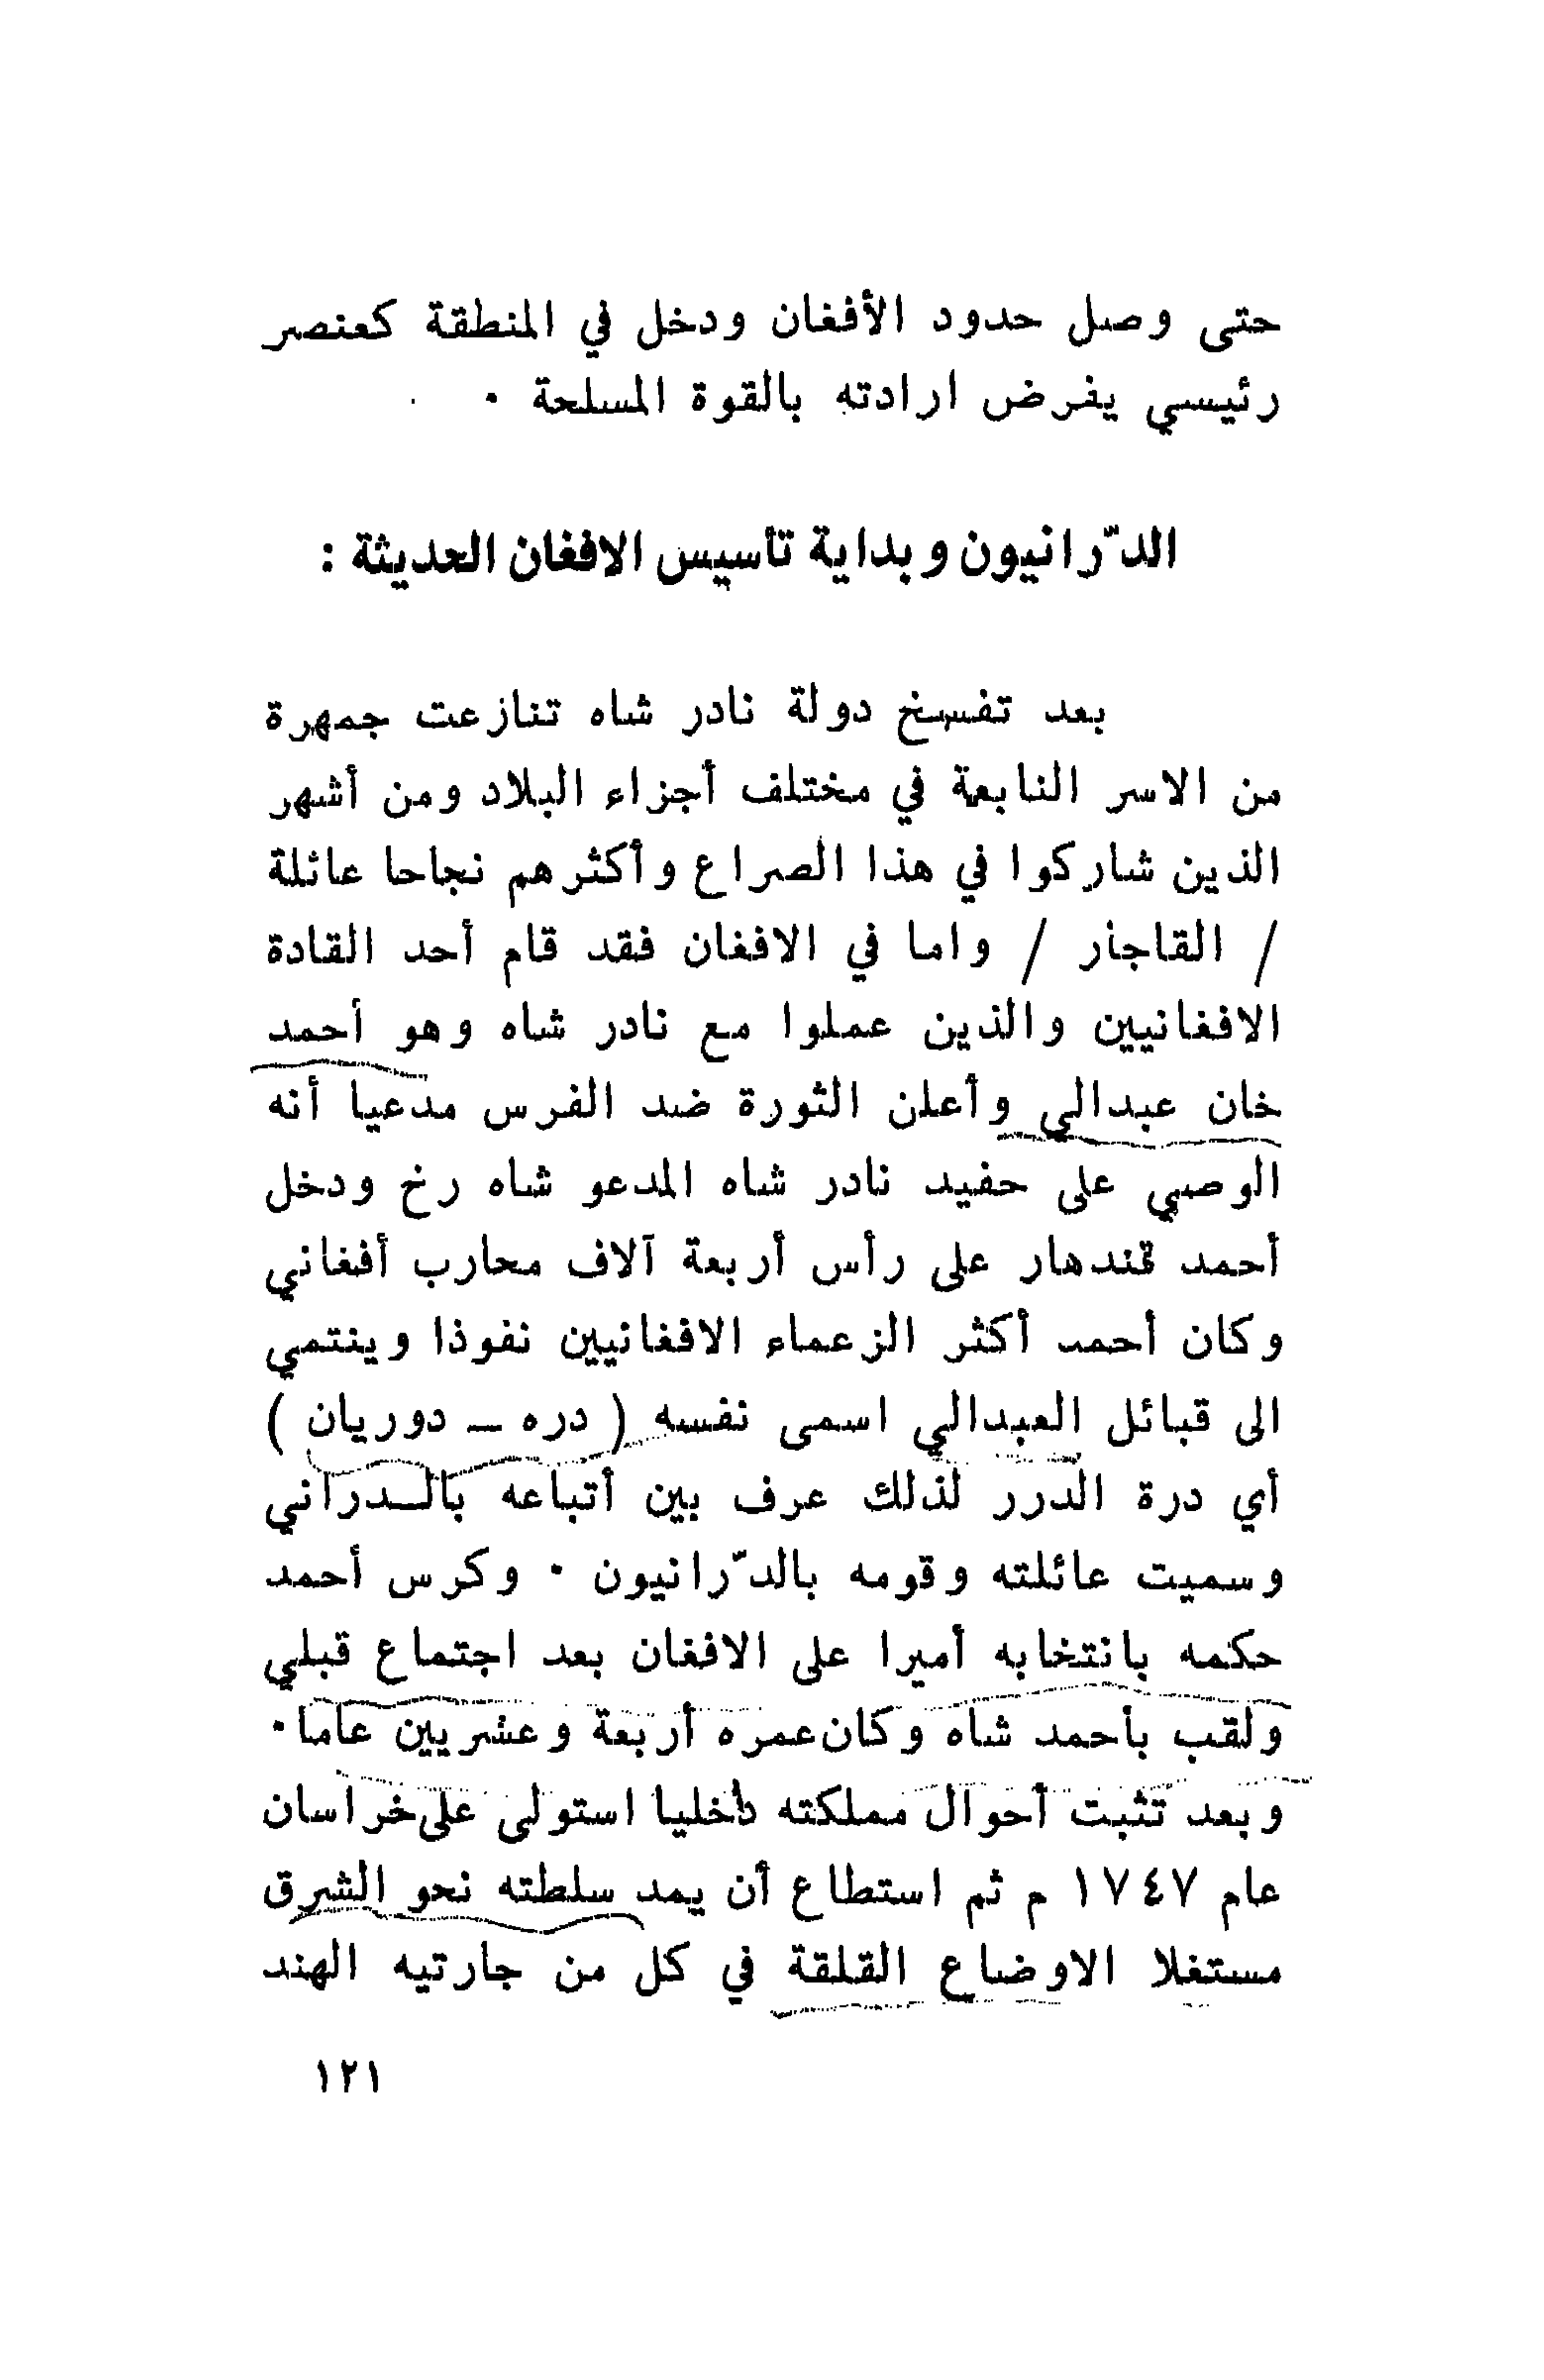 حتى وصل حدود الأفغان ودخل في المنطقة كعنصر
رئيسي يفرض ارادته بالقوة المسلحة ٠
الدّرانيون وبداية تأسيس الافغان الحديثة :
بعد تفسخ دولة نادر شاه تنازعت جمهرة
من الاسر النابعة في مختلف أجزاء البلاد ومن أشهر
الذين شاركوا في هذا الصراع وأكثرهم نجاحا عائلة
/ القاجار / واما في الافغان فقد قام أحد القادة
الافغانيين والذين عملوا مع نادر شاه وهو أحمد
خان عبدالي وأعلن الثورة ضد الفرس مدعيا أنه
الوصي على حفيد نادر شاه المدعو شاه رخ ودخل
أحمد قندهار على رأس أربعة آلاف محارب أفغاني
وكان أحمد أكثر الزعماء الافغانيين نفوذا وينتمي
الى قبائل العبدالي اسمى نفسه ( دره ــ دوريان )
أي درة الدرر لذلك عرف بين أتباعه بالــدراني
وسميت عائلته وقومه بالدّرانيون ٠ وكرس أحمد
حكمه بانتخابه أميرا على الافغان بعد اجتماع قبلي
ولقب بأحمد شاه وكان عمره أربعة وعشريين عاما٠
وبعد تثبت أحوال مملكته داخليا استولى على خراسان
عام ١٧٤٧ م ثم استطاع أن يمد سلطته نحو الشرق
مستغلا الاوضاع القلقة في كل من جارتيه الهند
١٢١